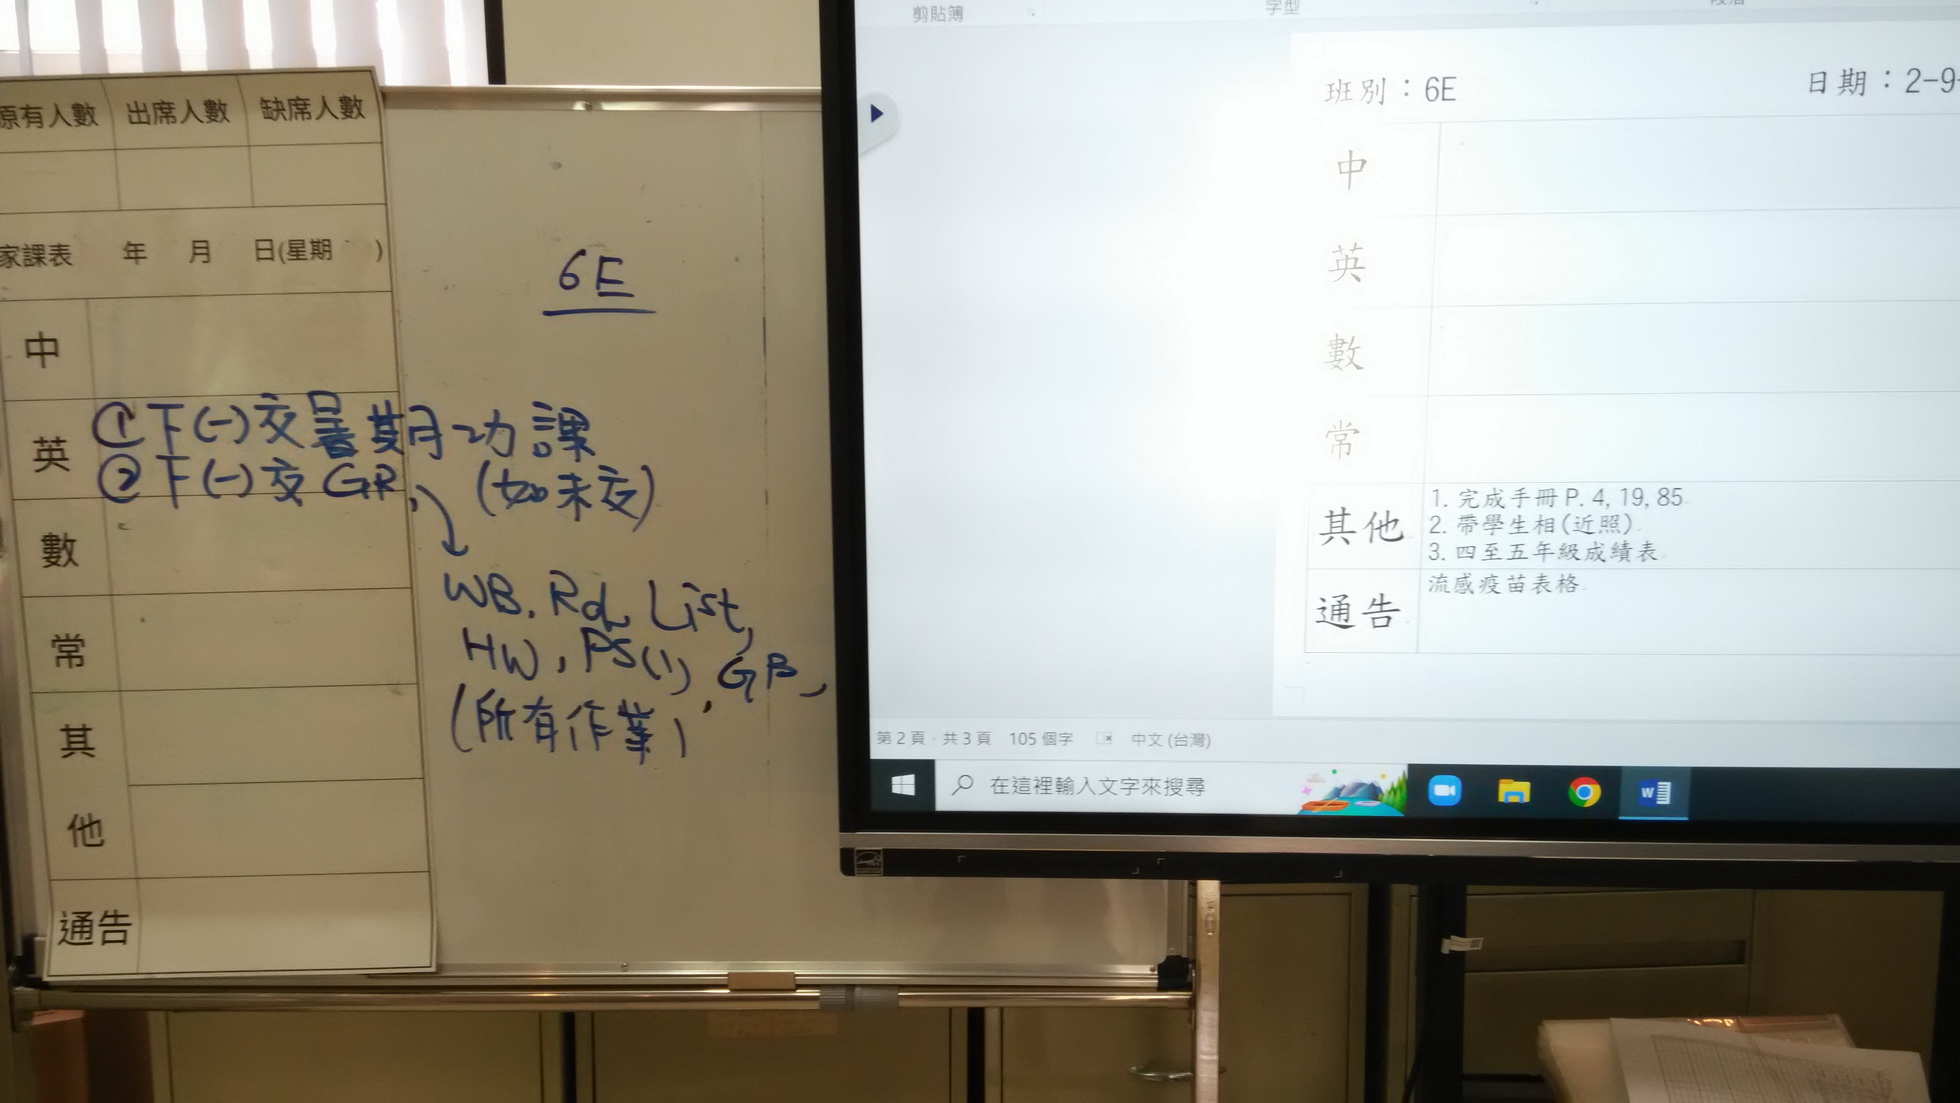 原有人數 出席人數 缺席人數
家課表 年 月 日(星期 )
中
英
數
常
其
他
通告
6E
①下(一)交暑期功課
②下(一)交GR, (如未交)
WB, Rd, List,
HW, PS(1), GB,
(所有作業)
剪貼簿 字型 段落
班別：6E 日期：2-9-
中
英
數
常
其他
1. 完成手冊 P. 4, 19, 85
2. 帶學生相(近照)
3. 四至五年級成績表
通告
流感疫苗表格
第 2 頁，共 3 頁 105 個字 中文 (台灣)
在這裡輸入文字來搜尋
W